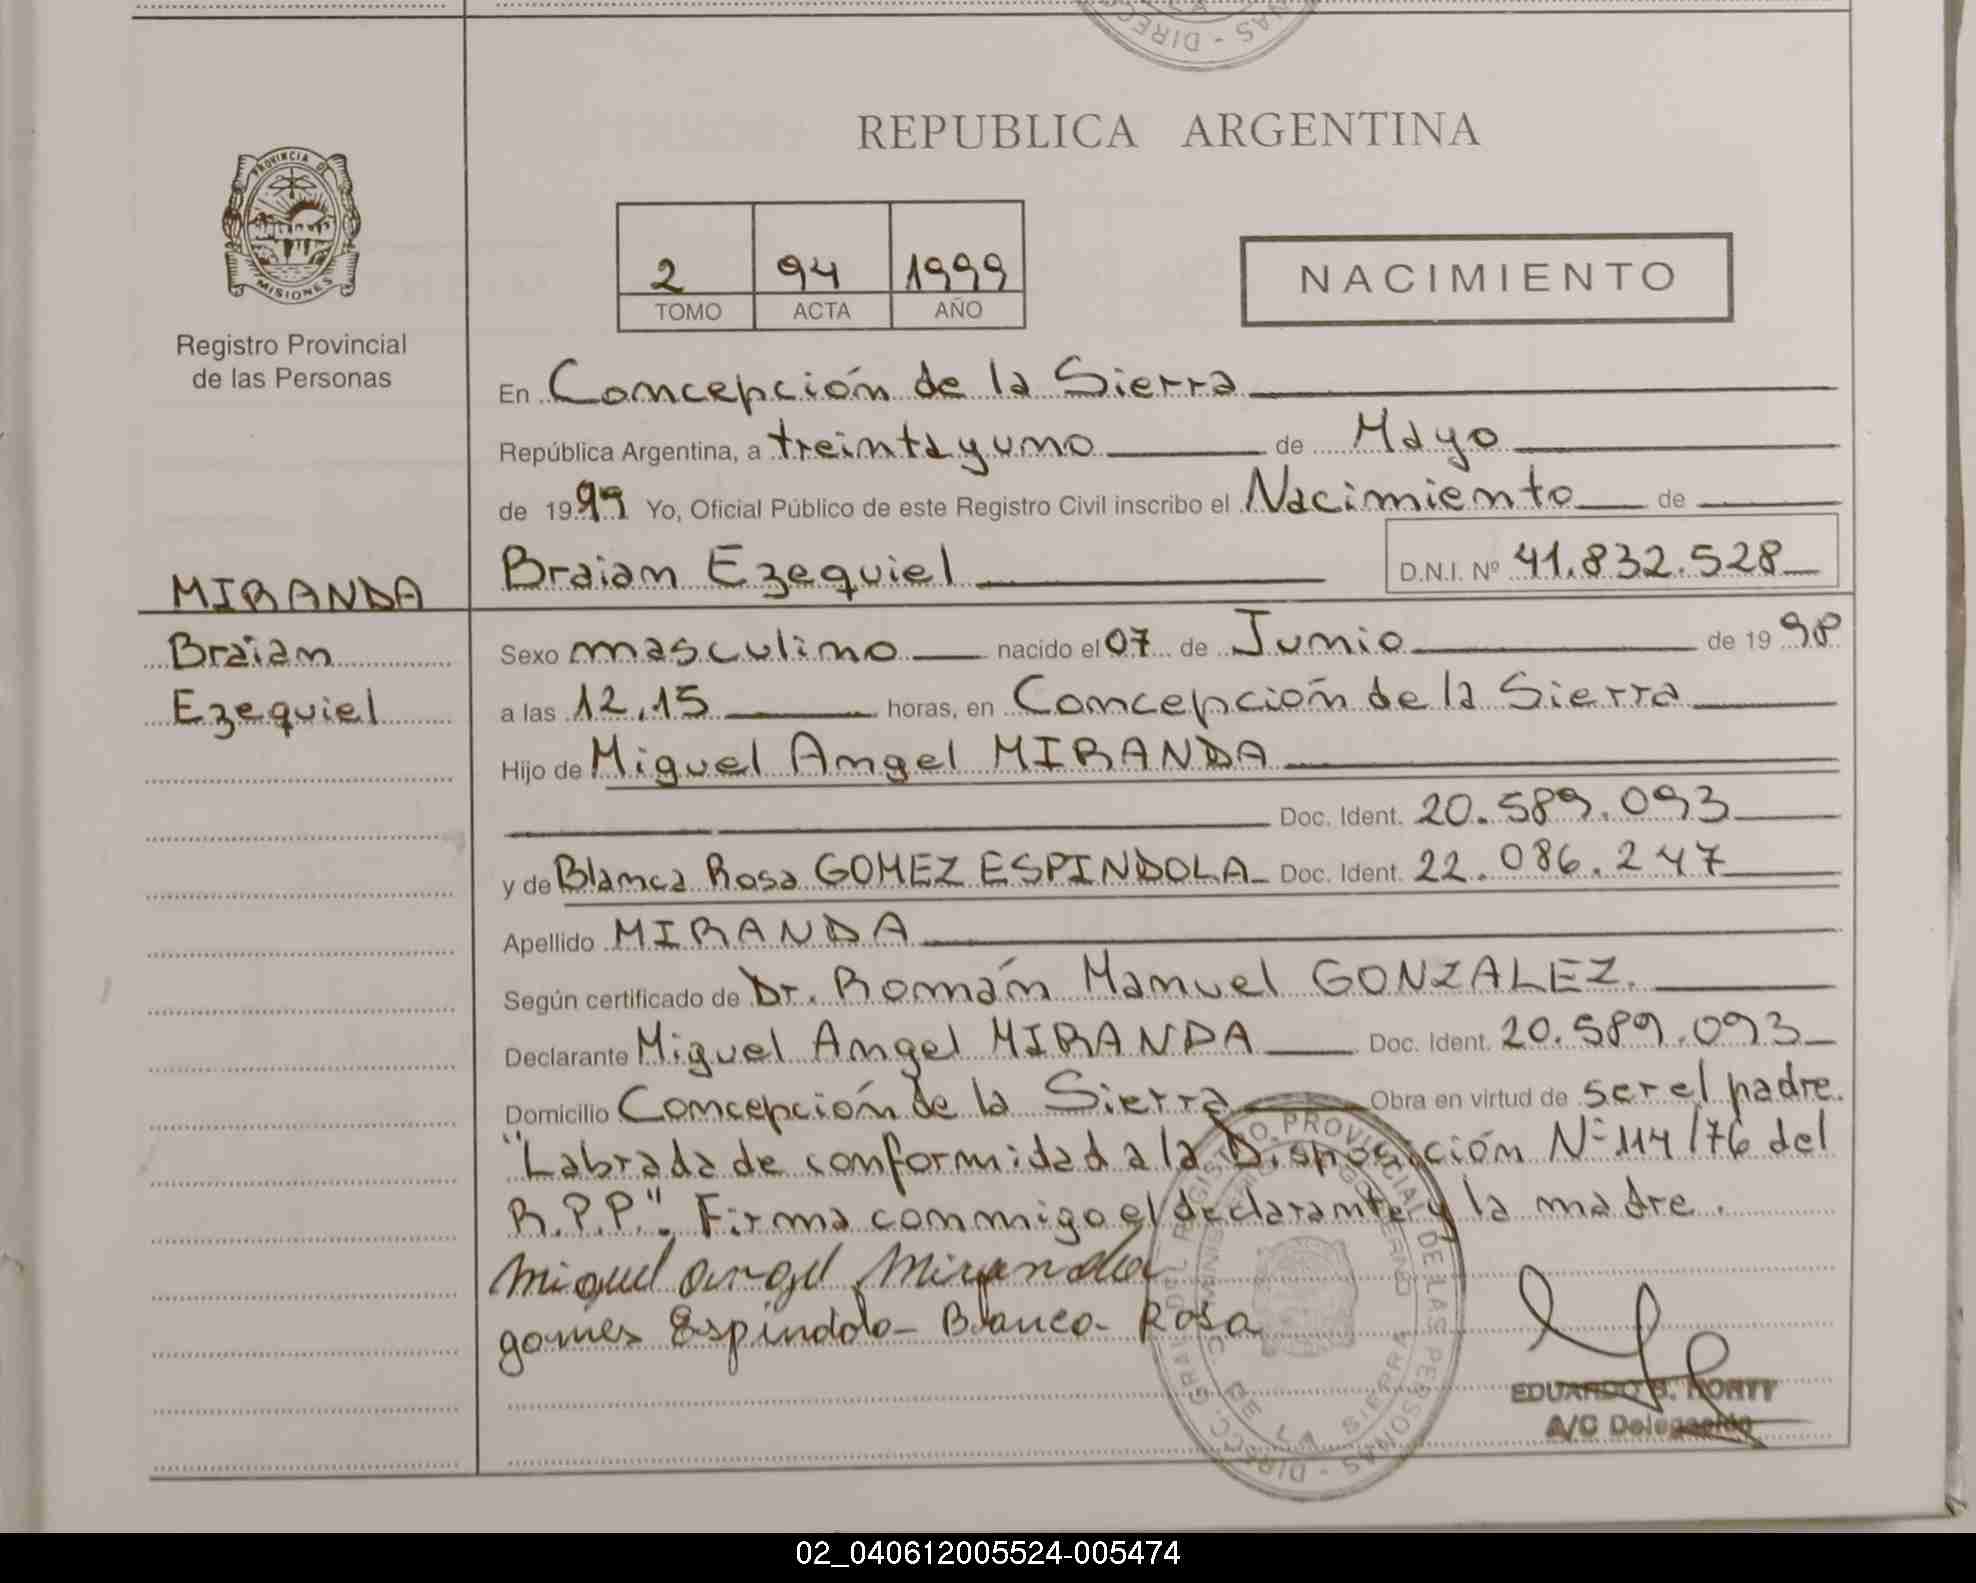 REPUBLICA ARGENTINA
PROVINCIA DE
MISIONES
Registro Provincial
de las Personas
2 94 1999
TOMO ACTA AÑO
NACIMIENTO
En Concepción de la Sierra
República Argentina, a treinta y uno de Mayo
de 1999 Yo, Oficial Público de este Registro Civil inscribo el Nacimiento de
Braian Ezequiel D.N.I. Nº 41.832.528
MIRANDA
Braian
Ezequiel
Sexo masculino nacido el 07 de Junio de 1998
a las 12,15 horas, en Concepción de la Sierra
Hijo de Miguel Angel MIRANDA
Doc. Ident. 20.589.093
y de Blanca Rosa GOMEZ ESPINDOLA Doc. Ident. 22.086.247
Apellido MIRANDA
Según certificado de Dr. Román Manuel GONZALEZ.
Declarante Miguel Angel MIRANDA Doc. Ident. 20.589.093
Domicilio Concepción de la Sierra Obra en virtud de ser el padre.
"Labrada de conformidad a la Disposición Nº 114/76 del
R.P.P.". Firma conmigo el declarante y la madre.
Miguel angel Miranda
gomes Espindola Blanca Rosa
EDUARDO
A/C Delegación
02_040612005524-005474